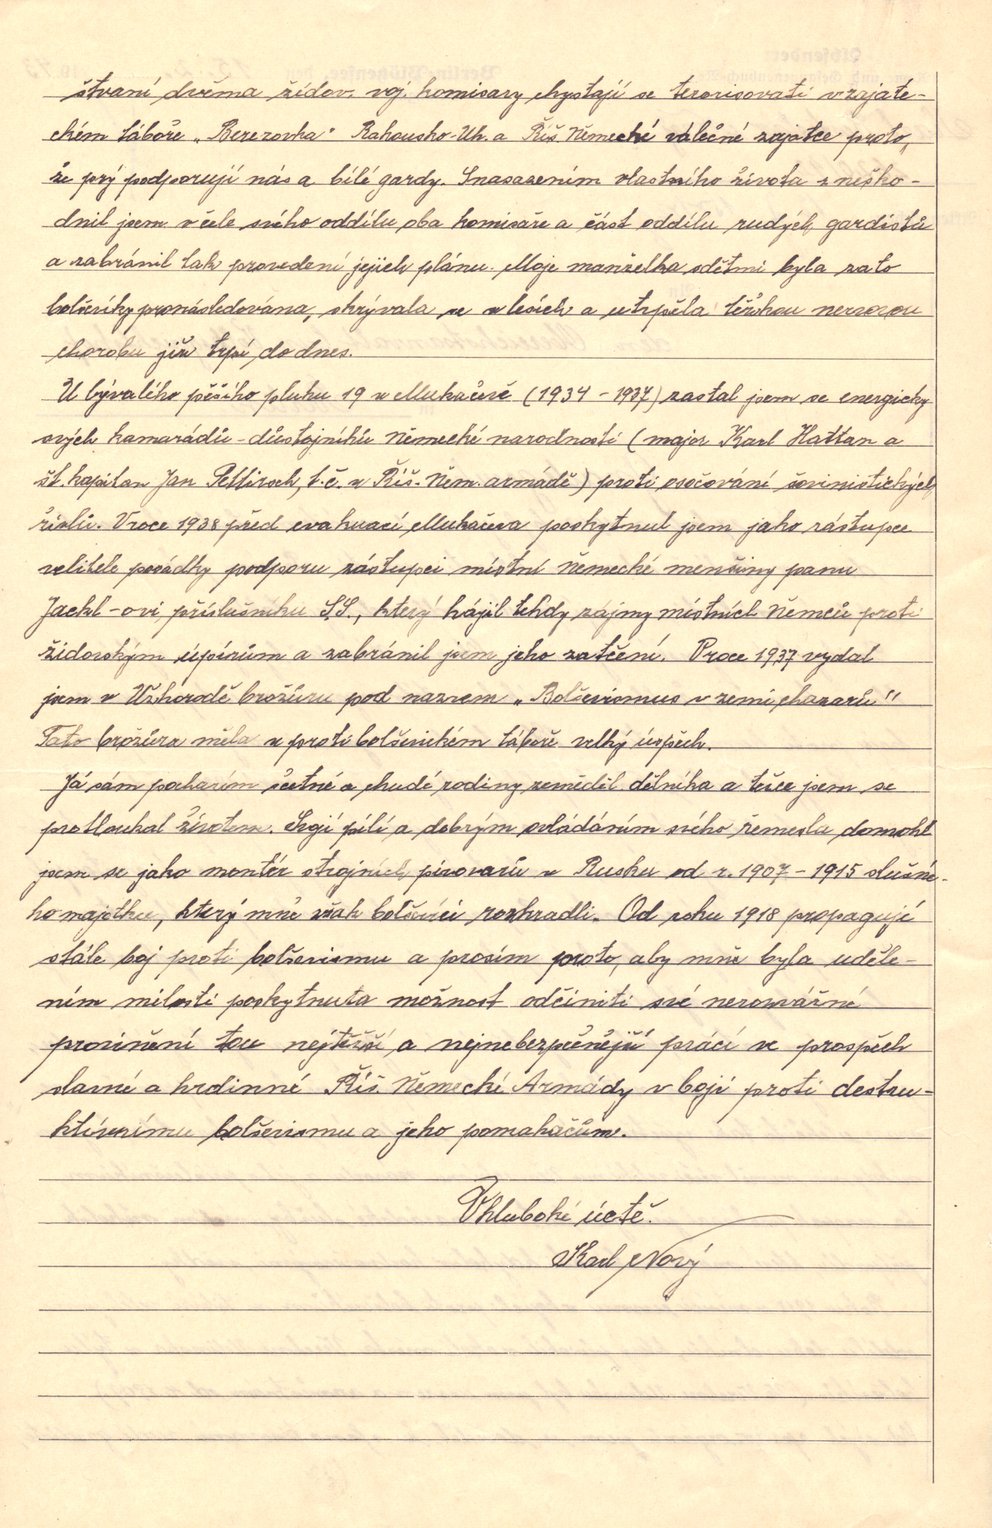 štvaní dvěma židov. voj. komisary chystají se terorisovati v zajate-
ckém táboře „Berezovka" Rakousko-Uh. a Říš. Německé válečné zajatce proto,
že prý podporují nás a bílé gardy. S nasazením vlastního života zneško-
dnil jsem v čele svého oddílu oba komisaře a část oddílu rudých gardistů
a zabránil tak provedení jejich plánu. Moje manželka s dětmi byla za to
bolševiky pronásledována, skrývala se v lesích a utrpěla těžkou nervovou
chorobu jíž trpí do dnes.
U bývalého pěšího pluku 19 v Mukačevě (1934 - 1937) zastal jsem se energicky
svých kamarádů - důstojníků Německé narodnosti (major Karl Hattan a
št. kapitan Jan Pettirsch, t. č. v Říš. Něm. armádě) proti osočování šovinistických
živlů. V roce 1938 před evakuací Mukačeva poskytnul jsem jako zástupce
velitele posádky podporu zástupci místní Německé menšiny panu
Jackl-ovi příslušníku S.S., který hájil tehdy zájmy místních Němců proti
židovským upírům a zabránil jsem jeho zatčení. V roce 1937 vydal
jsem v Užhorodě brožuru pod nazvem „Bolševismus v zemi chazarů"
Tato brožura měla v protibolševickém táboře velký úspěch.
Já sám pocházím z četné a chudé rodiny zeměděl. dělníka a těžce jsem se
protloukal životem. Svojí pílí a dobrým ovládáním svého řemesla domohl
jsem se jako montér strojních pivovarů v Rusku od r. 1907 - 1915 slušné-
ho majetku, který mně však bolševici rozkradli. Od roku 1918 propaguji
stále boj proti bolševismu a prosím proto, aby mně byla uděle-
ním milosti poskytnuta možnost odčiniti své nerozvážné
provinění tou nejtěžší a nejnebezpečnější prácí ve prospěch
slavné a hrdinné Říš. Německé Armády v boji proti destru-
ktivnímu bolševismu a jeho pomahačům.
V hluboké úctě.
Karl Nový